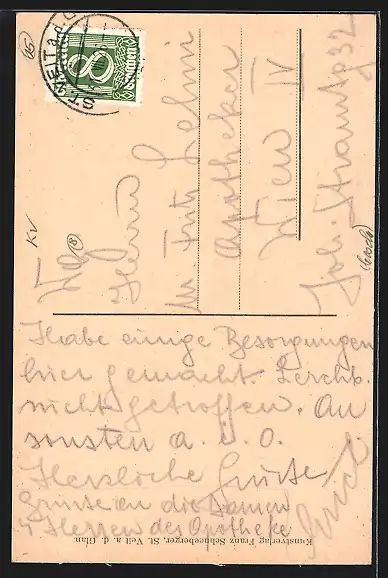 ST. VEIT a. d. G
8
Groschen
15
KV
Wg 8
Herrn
Mr. Fritz
Apotheker
Wien IV
Joh. Straussg 32
Habe einige Besorgungen
hier gemacht. Lerchb.
nicht getroffen. An
sonsten a. i. O.
Herzliche Grüsse
Grüsse an die Damen
u Herren der Apotheke
Kunstverlag Franz Schneeberger, St. Veit a. d. Glan.